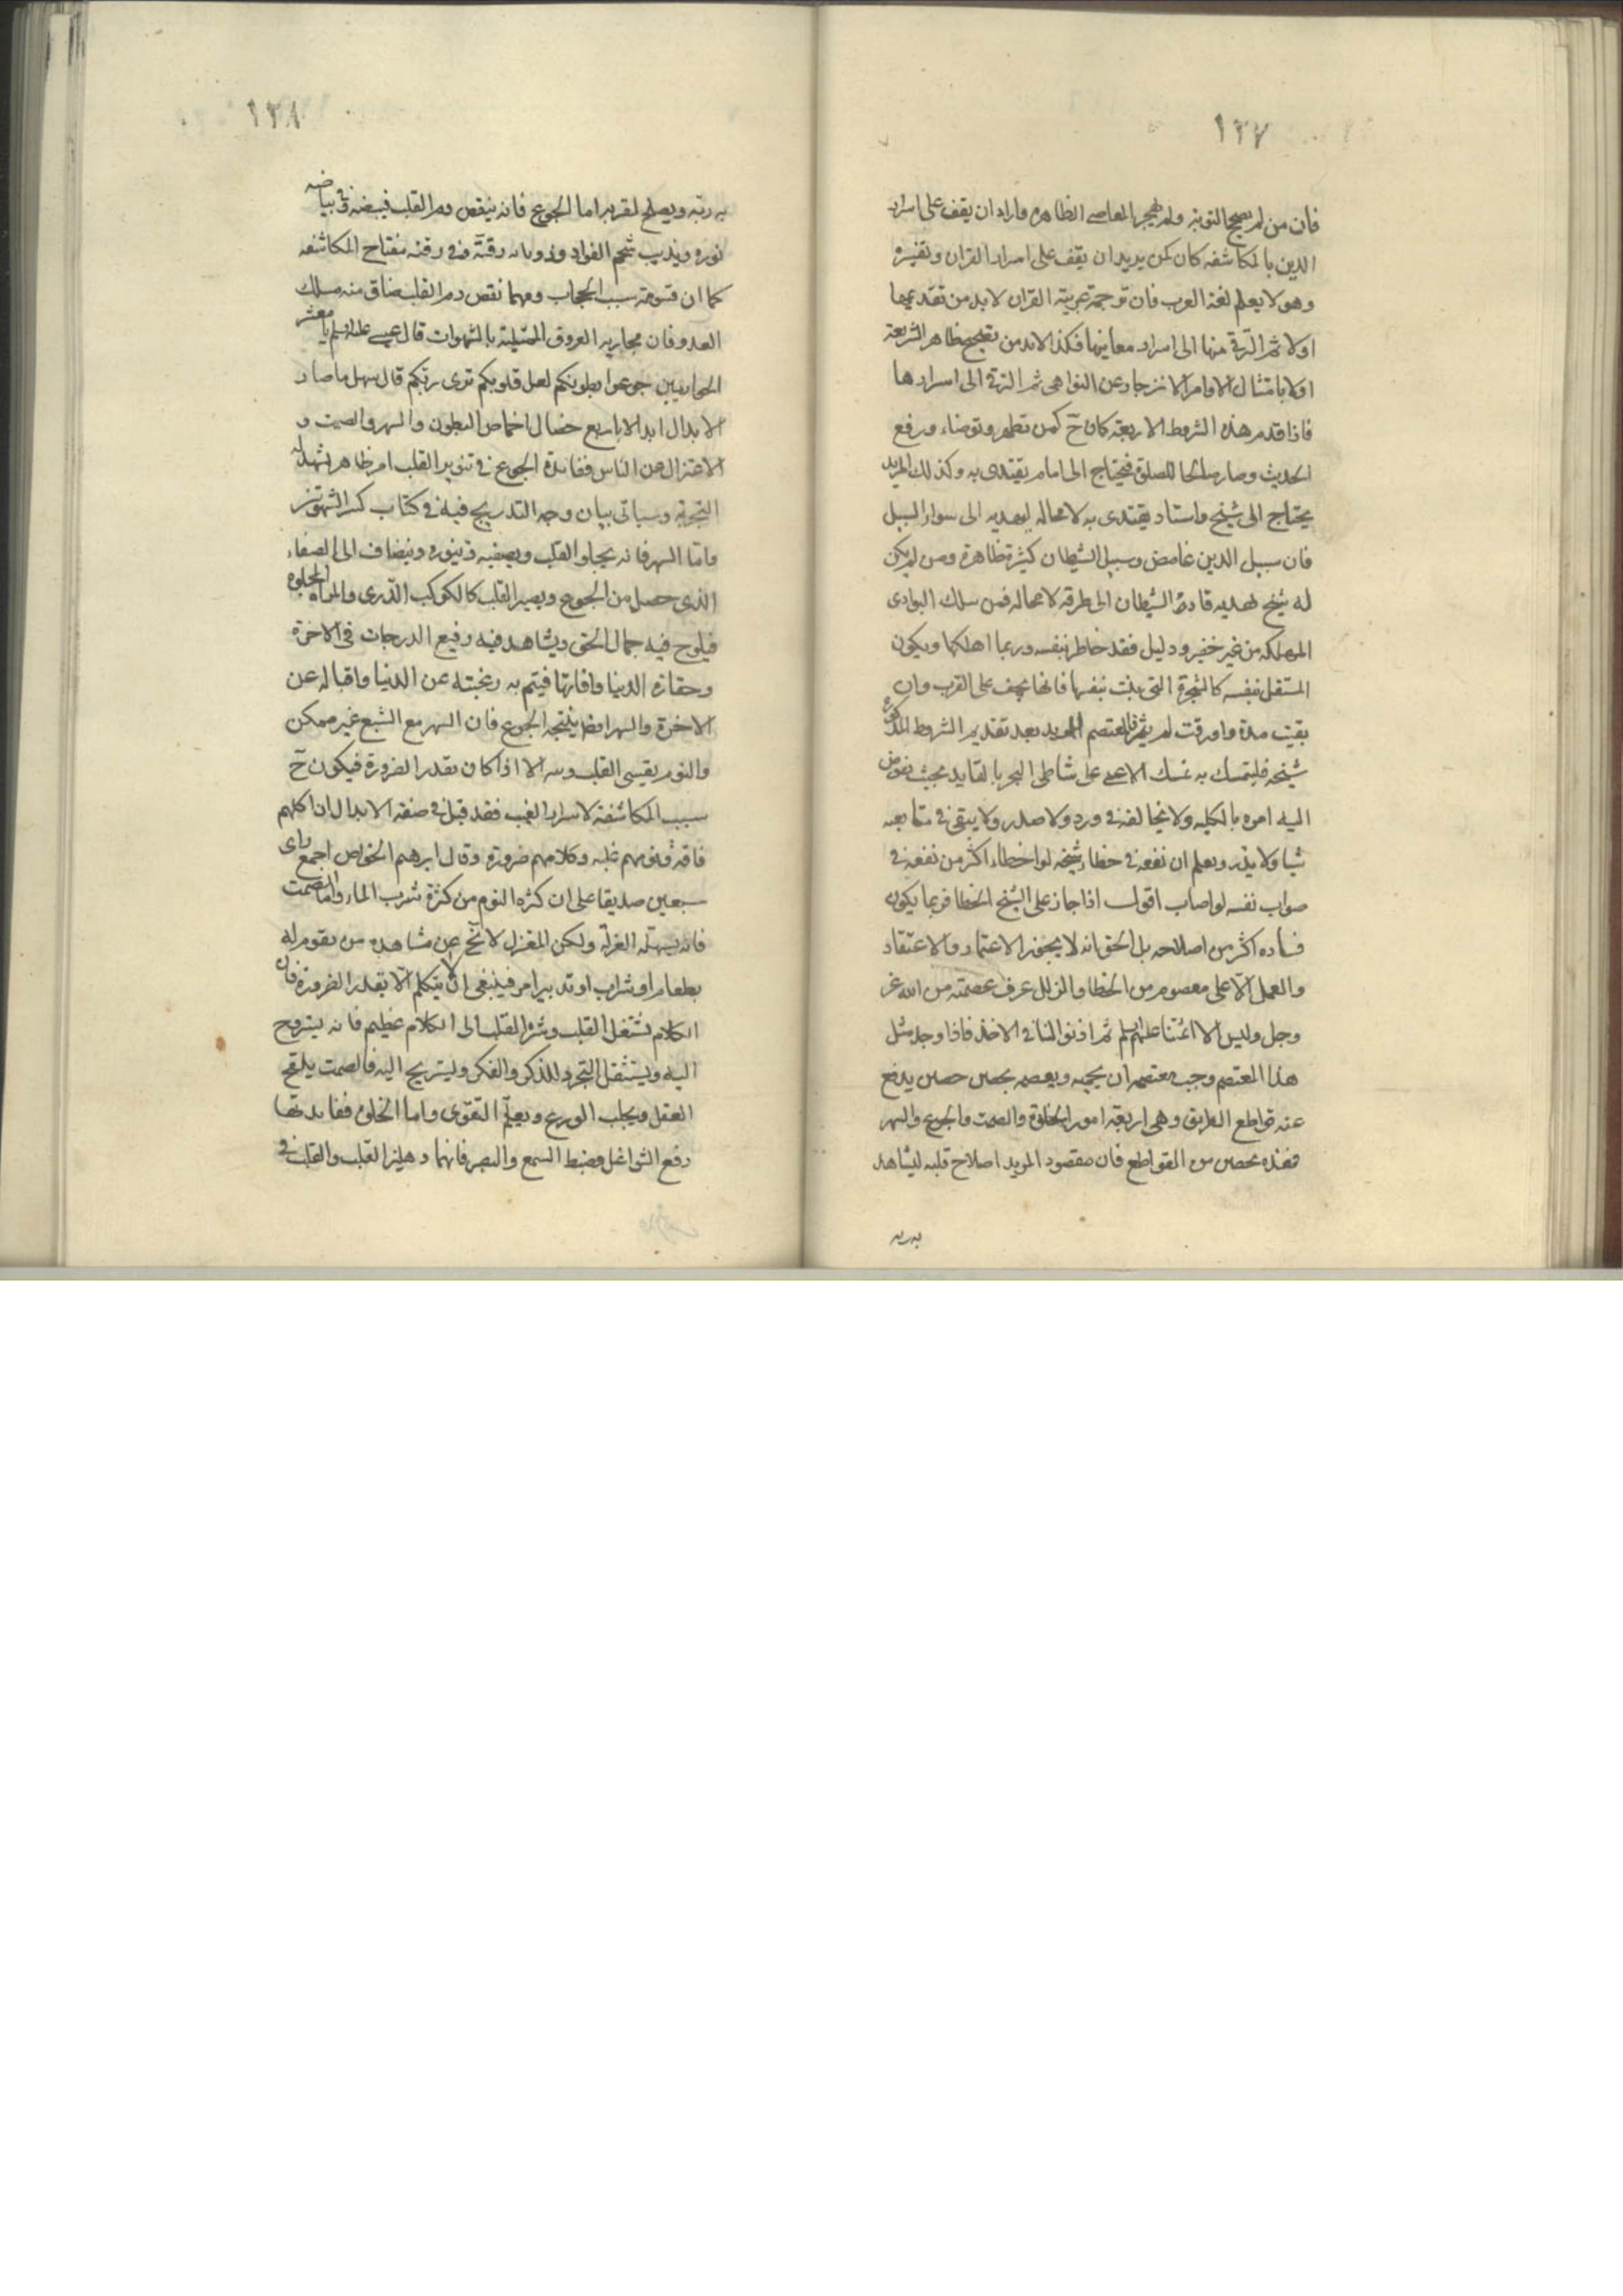 ١٣٧
فان من لم يصحح التوبة ولم يهجر المعاصي الظاهرة واراد ان يقف على اسرار
الدين بالمكاشفه كان كمن يريد ان يقف على اسرار القران وتفسيره
وهو لا يعلم لغة العرب فان ترجمة عربية القران لابد من تقديمها
اولا ثم الترقي منها الى اسرار معانيها فكذا لابد من تصحيح ظاهر الشريعة
اولا بامتثال الاوامر الانزجار عن النواهي ثم الترقي الى اسرارها
فاذا قدم هذه الشروط الاربعة كان ح كمن تطهر وتوضاء ورفع
الحدث وصار صالحا للصلوة فيحتاج الى امام يقتدى به وكذلك المريد
يحتاج الى شيخ واستاد يقتدى به لا محاله ليهديه الى سواء السبيل
فان سبيل الدين غامض وسبيل الشيطان كثيرة ظاهرة ومن لم يكن
له شيخ يهديه قاده الشيطان الى طرقه لا محاله فمن سلك البوادى
المهلكه من غير خفير ودليل فقد خاطر بنفسه وربما اهلكها ويكون
المستقل بنفسه كالشجرة التي تنبت بنفسها فانها تجف على القرب وان
بقيت مدة واورقت لم يثمر فالمعتصم المريد بعد تقديم الشروط المذكورة
شيخه فليتمسك به تمسك الاعمى على شاطى البحر بالقايد بحيث يفوض
اليه امره بالكليه ولا يخالفه في ورد ولا صدر ولا يبقى في متابعه
شيا ولا يذر ويعلم ان نفعه في خطاء شيخه لو اخطاء اكثر من نفعه في
صواب نفسه لو اصاب اقول اذا جاز على الشيخ الخطا فربما يكون
فساده اكثر من اصلاحه بل الحق انه لا يجوز الاعتماد والاعتقاد
والعمل الا على معصوم من الخطا والزلل عرف عصمته من الله عز
وجل وليس الا ائمتنا عليهم السلم ثم اذنوا لنا في الاخذ فاذا وجد مثل
هذا المعتصم وجب معتصمه ان يحميه ويعصمه بحصن حصين يدفع
عنه قواطع الطريق وهي اربعة امور الخلوة والصمت والجوع والسهر
فهذه تحصن من القواطع فان مقصود المريد اصلاح قلبه ليشاهد
به ربه
١٣٨
به ربه ويصلح لقربه اما الجوع فانه ينقص دم القلب فيبيضه في بياضه
نوره ويذيب شحم الفواد وذوبانه رقته وفي رقته مفتاح المكاشفه
كما ان قسوته سبب الحجاب ومهما نقص دم القلب ضاق منه مسلك
العدو فان مجاريه العروق الممتلية بالشهوات قال عيسى عليه السلم يا معشر
الحواريين جوعوا بطونكم لعل قلوبكم ترى ربكم قال سهل ما صار
الابدال ابدالا الا باربع خصال اخماص البطون والسهر والصمت و
الاعتزال عن الناس ففايدة الجوع في تنوير القلب امر ظاهر يشهد له
التجربة وسياتي بيان وجه التدريج فيه في كتاب كسر الشهوتين
واما السهر فانه يجلو القلب ويصفيه وينوره وينضاف الى الصفاء
الذى حصل من الجوع ويصير القلب كالكوكب الدرى والمراة المجلوة
فيلوح فيه جمال الحق ويشاهد فيه رفيع الدرجات في الاخرة
وحقارة الدنيا وافاتها فيتم به رغبته عن الدنيا واقباله عن
الاخرة والسهر ايضا ينتجه الجوع فان السهر مع الشبع غير ممكن
والنوم يقسي القلب ويميته الا اذا كان بقدر الضرورة فيكون ح
سبب المكاشفة لاسرار الغيب فقد قيل في صفة الابدال ان اكلهم
فاقة ونومهم غلبه وكلامهم ضرورة وقال ابرهيم الخواص اجمع راى
سبعين صديقا على ان كثرة النوم من كثرة شرب الماء واما الصمت
فانه يسهله العزلة ولكن المعتزل لا يخ عن مشاهدة من يقوم له
بطعام او شراب او تدبير امر فينبغى ان لا يتكلم الا بقدر الضرورة فان
الكلام يشغل القلب وشره القلب الى الكلام عظيم فانه يستروح
اليه ويستثقل التجرد للذكر والفكر ويستريح اليه فالصمت يلقح
العقل ويجلب الورع ويعلم التقوى واما الخلوة ففايدتها
دفع الشواغل وضبط السمع والبصر فانهما دهليز القلب والقلب في